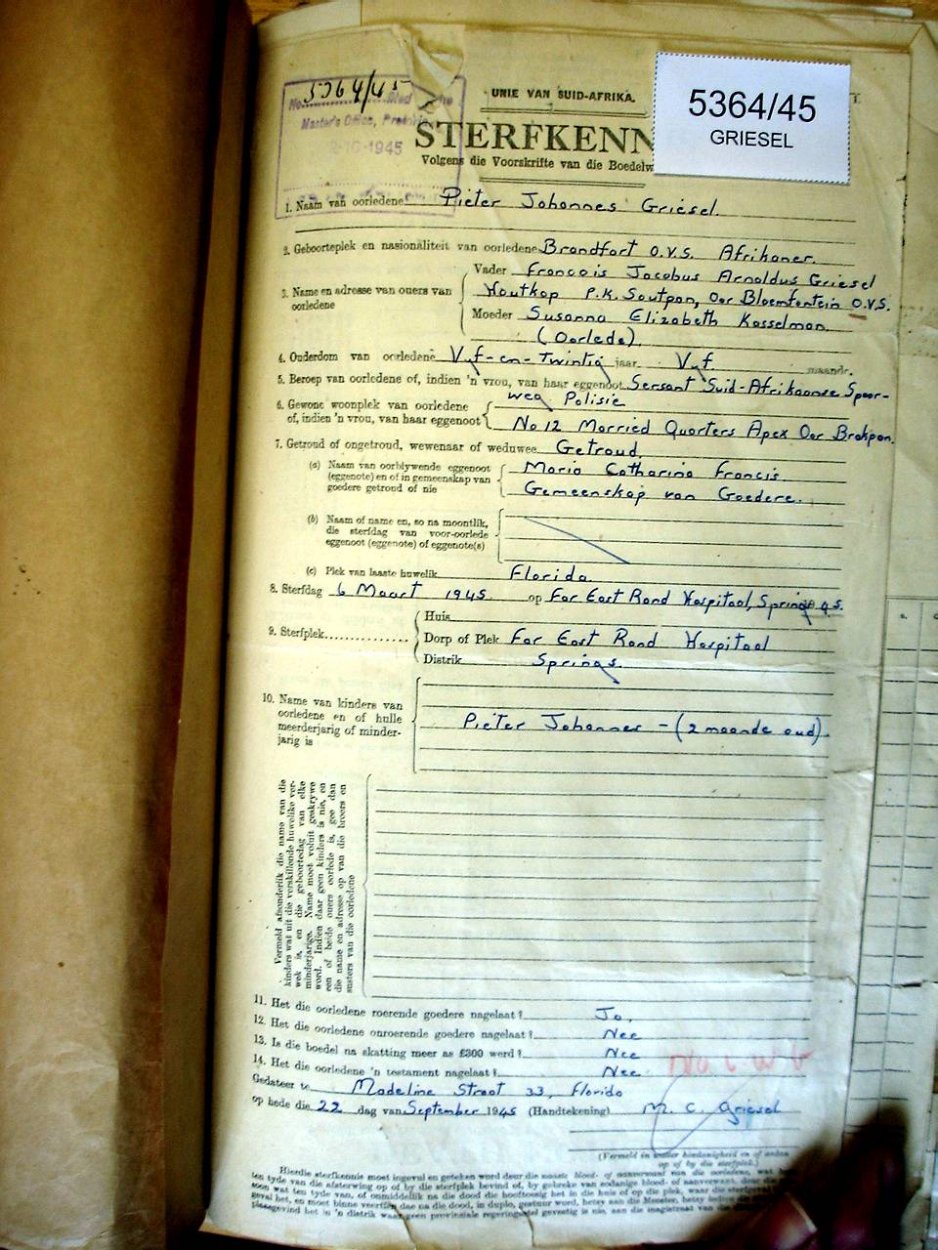 5364/45
GRIESEL
No. 5364/45
Master's Office,
1945
UNIE VAN SUID-AFRIKA.
STERFKENN
Volgens die Voorskrifte van die Boedelw
1. Naam van oorledene Pieter Johannes Griesel.
2. Geboorteplek en nasionaliteit van oorledene Brandfort O.V.S. Afrikaner.
3. Name en adresse van ouers van oorledene
Vader Francois Jacobus Arnoldus Griesel
Houtkop P.K. Soutpan, Oor Bloemfontein O.V.S.
Moeder Susanna Elizabeth Kosselman
(Oorlede)
4. Ouderdom van oorledene Vyf-en-Twintig jaar Vyf maande.
5. Beroep van oorledene of, indien 'n vrou, van haar eggenoot Sersant Suid-Afrikaanse Spoor-
weg Polisie
6. Gewone woonplek van oorledene of, indien 'n vrou, van haar eggenoot
No 12 Married Quarters Apex Oor Brakpan.
7. Getroud of ongetroud, wewenaar of weduwee Getroud.
(a) Naam van oorblywende eggenoot (eggenote) en of in gemeenskap van goedere getroud of nie
Maria Catharina Francis
Gemeenskap van Goedere.
(b) Naam of name en, so na moontlik, die sterfdag van voor-oorlede eggenoot (eggenote) of eggenote(s)
(c) Plek van laaste huwelik Florida
8. Sterfdag 6 Maart 1945 op Far East Rand Hospitaal, Springs
9. Sterfplek
Huis
Dorp of Plek Far East Rand Hospitaal
Distrik Springs.
10. Name van kinders van oorledene en of hulle meerderjarig of minder-jarig is
Pieter Johannes - (2 maande oud).
Vermeld afsonderlik die name van die
kinders wat uit die verskillende huwelike ver-
wek is, en die geboortedag van elke
minderjarige. Name moet voluit geskrywe
word. Indien daar geen kinders is nie, en
een of beide ouers oorlede is, gee dan
die name en adresse op van die broers en
susters van die oorledene
11. Het die oorledene roerende goedere nagelaat? Ja.
12. Het die oorledene onroerende goedere nagelaat? Nee
13. Is die boedel na skatting meer as £300 werd? Nee
14. Het die oorledene 'n testament nagelaat? Nee.
Gedateer te Madeline Straat 33, Florida
op hede die 22 dag van September 1945 (Handtekening) M. C. Griesel
(Vermeld in watter hoedanigheid en of anders
op of by die sterfplek.)
Hierdie sterfkennis moet ingevul en geteken word deur die naaste bloed- of aanverwant van die oorledene, wat
ten tyde van die afsterwing op of by die sterfplek bevind of, by gebreke van sodanige bloed- of aanverwant, deur die